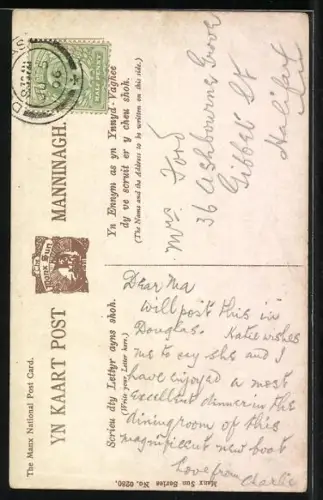 The Manx National Post Card.
YN KAART POST MANNINAGH.
The Manx Sun
Scrieu dty Lettyr ayns shoh.
(Write your Letter here.)
Yn Ennym as yn Ynnyd-Vaghee
dy ve scruit er y cheu shoh.
(The Name and the Address to be written on this side.)
Mrs Ford
36 Ashbourne Grove
Gibbet St
Halifax
Dear Ma
Will post this in
Douglas. Katie wishes
me to say she and I
have enjoyed a most
excellent dinner in the
diningroom of this
magnificent new boat
love from Charlie
Manx Sun Series No. 0280.